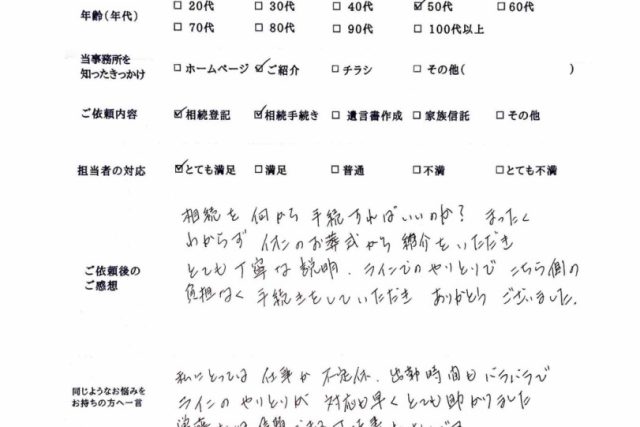 年齢(年代) □20代 □30代 □40代 ☑50代 □60代
□70代 □80代 □90代 □100代以上
当事務所を
知ったきっかけ □ホームページ ☑ご紹介 □チラシ □その他( )
ご依頼内容 ☑相続登記 ☑相続手続き □遺言書作成 □家族信託 □その他
担当者の対応 ☑とても満足 □満足 □普通 □不満 □とても不満
ご依頼後の
ご感想
相続を何から手続すればいいのか? まったく
わからず イオンのお葬式から紹介をいただき
とても丁寧な説明、ラインでのやりとりで こちら側の
負担なく 手続きをしていただき ありがとうございました。
同じようなお悩みを
お持ちの方へ一言
私にとっては 仕事が 不定休、出勤時間もバラバラで
ラインのやりとりが 対応も早くとても助かりました